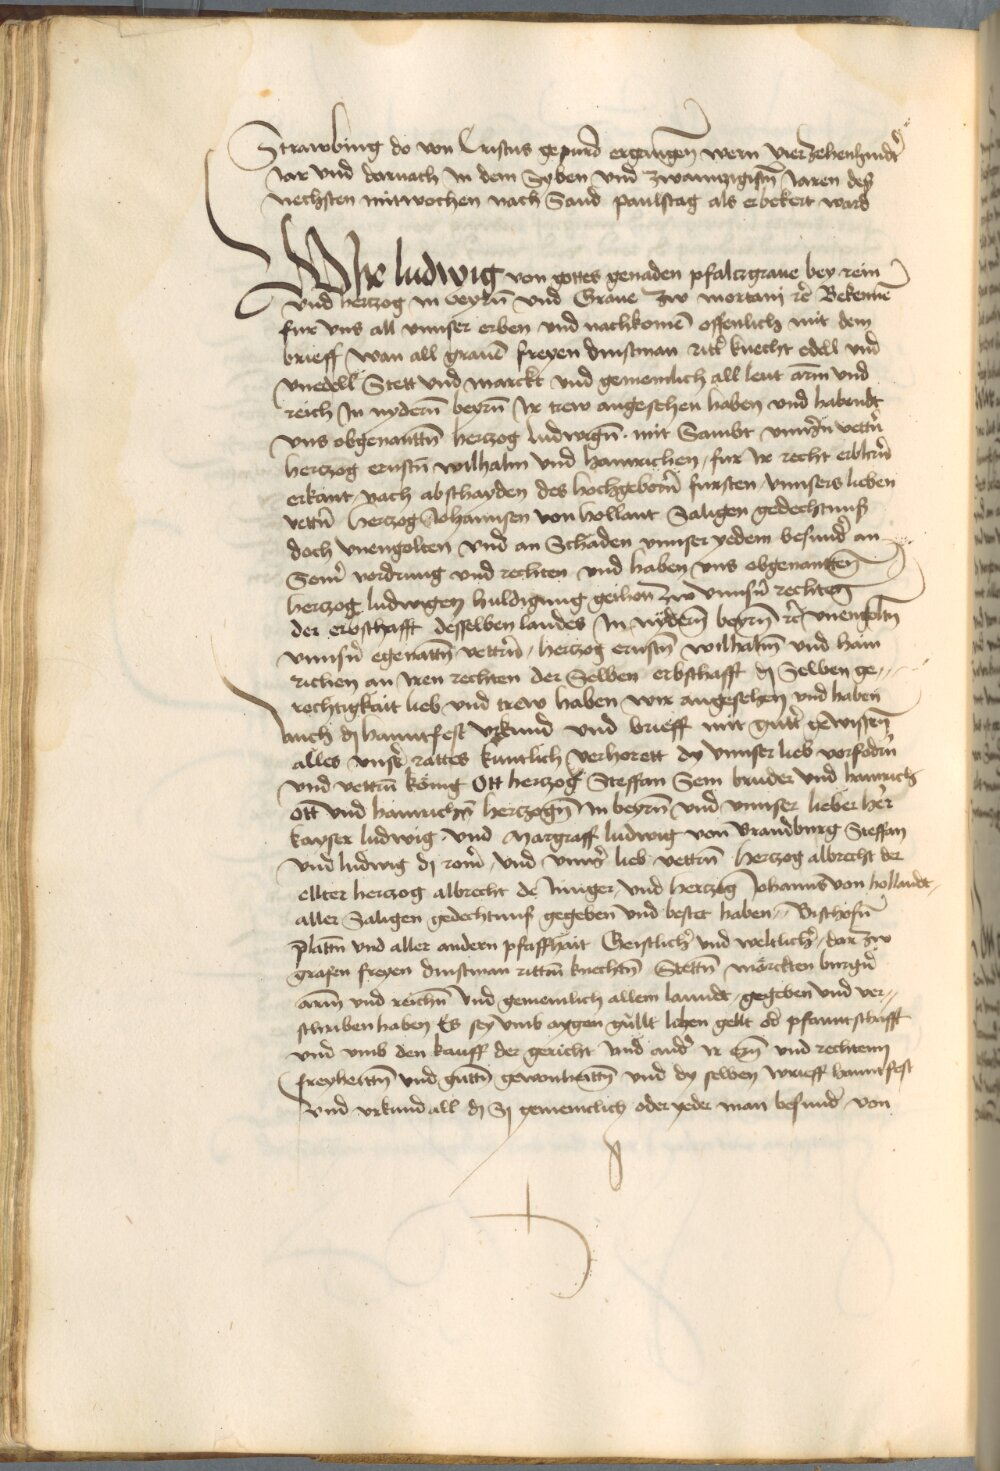 Strawbing do von Cristus gepurd ergangen wern vierzehenhundt̃
Jar vnd darnach in dem Syben vnd zwanntzigistn̄ Jaren des
nechsten mittwochen nach Sand paulstag als er bekert ward
Wir ludwig von gottes genaden pfaltzgraue bey rein
vnd hertzog in beyrn̄ vnd Graue zw mortani ꝛc̄ Bekennē
fur vns all vnnser erben vnd nachkomē offenlich mit dem
brieff wan all grauē freyen dinstman ritt̃ knecht edell vnd
vnedell Stett vnd marckt vnd gemeinclich all leut arm̄ vnd
reich In nydern̄ beyrn̄ Ir trew angesehen haben vnd habendt
vns obgenanttn̄ hertzog ludwign̄ mit Sambt vnnsn̄ vettn̄
hertzog ernstn̄ wilhalm vnd hainrichen fur Ir recht erbhrn̄
erkant nach abschayden des hochgeborn̄ fursten vnnsers lieben
vettn̄ hertzog Johannsen von hollant Saligen gedechtnuss
doch vnengolten vnd an Schaden vnnser yedem besund̃ an
Sein̄ vordrung vnd rechten vnd haben vns obgenantten
hertzog ludwigen huldigung gethon zw vnnsn̄ rechten
der erbschafft desselben landes In nydern̄ beyrn̄ ꝛc̄ vnengoltn̄
vnnsn̄ egenattn̄ vettrn̄ hertzog ernstn̄ wilhalm̄ vnd hain
richen an Iren rechten der Selben erbschafft dy Selben ge⸗
rechtigkait lieb vnd trew haben wir angesehen vnd haben
auch dy hanntfest vrkund vnd brieff mit gutt̃ gewissen̄
alles vnsr̃ rattes kuntlich verhorett dy vnnser lieb vorfodrn̄
vnd vettrn̄ könig Ott hertzog Steffan Sein bruder vnd hainrich
ott vnd hainrichn̄ hertzogn̄ in beyrn̄ vnd vnnser lieber her̃
kayser ludwig vnd Margraff ludwig von Brandburg Steffan
vnd ludwig dy rom̃ vnd vnns̃ lieb vettrn̄ hertzog albrecht der
ellter hertzog albrecht de Junger vnd hertzog Johanns von hollandt
aller Saligen gedechtnuss gegeben vnd bestet haben Bischofn̄
plattn̄ vnd aller andern pfaffhait Geistlich̃ vnd weltlich̃ dar zw
grafen freyen dinstman rittrn̄ knechtn̄ Stettn̄ märckten burgn̄
armn̄ vnd reichn̄ vnd gemeinlich allem lanndt gegeben vnd ver⸗
schriben haben Es sey vmb aygen gullt lehen gellt od̃ pfanntschafft
vnd vmb den kauff der gericht vnd and̃ Ir ern̄ vnd rechtenn
freyheittn̄ vnd guttn̄ gewonheittn̄ vnd dy selben brieff hanntfest
vnd vrkund all dy Sy gemeinclich oder yeder man besund̃ von